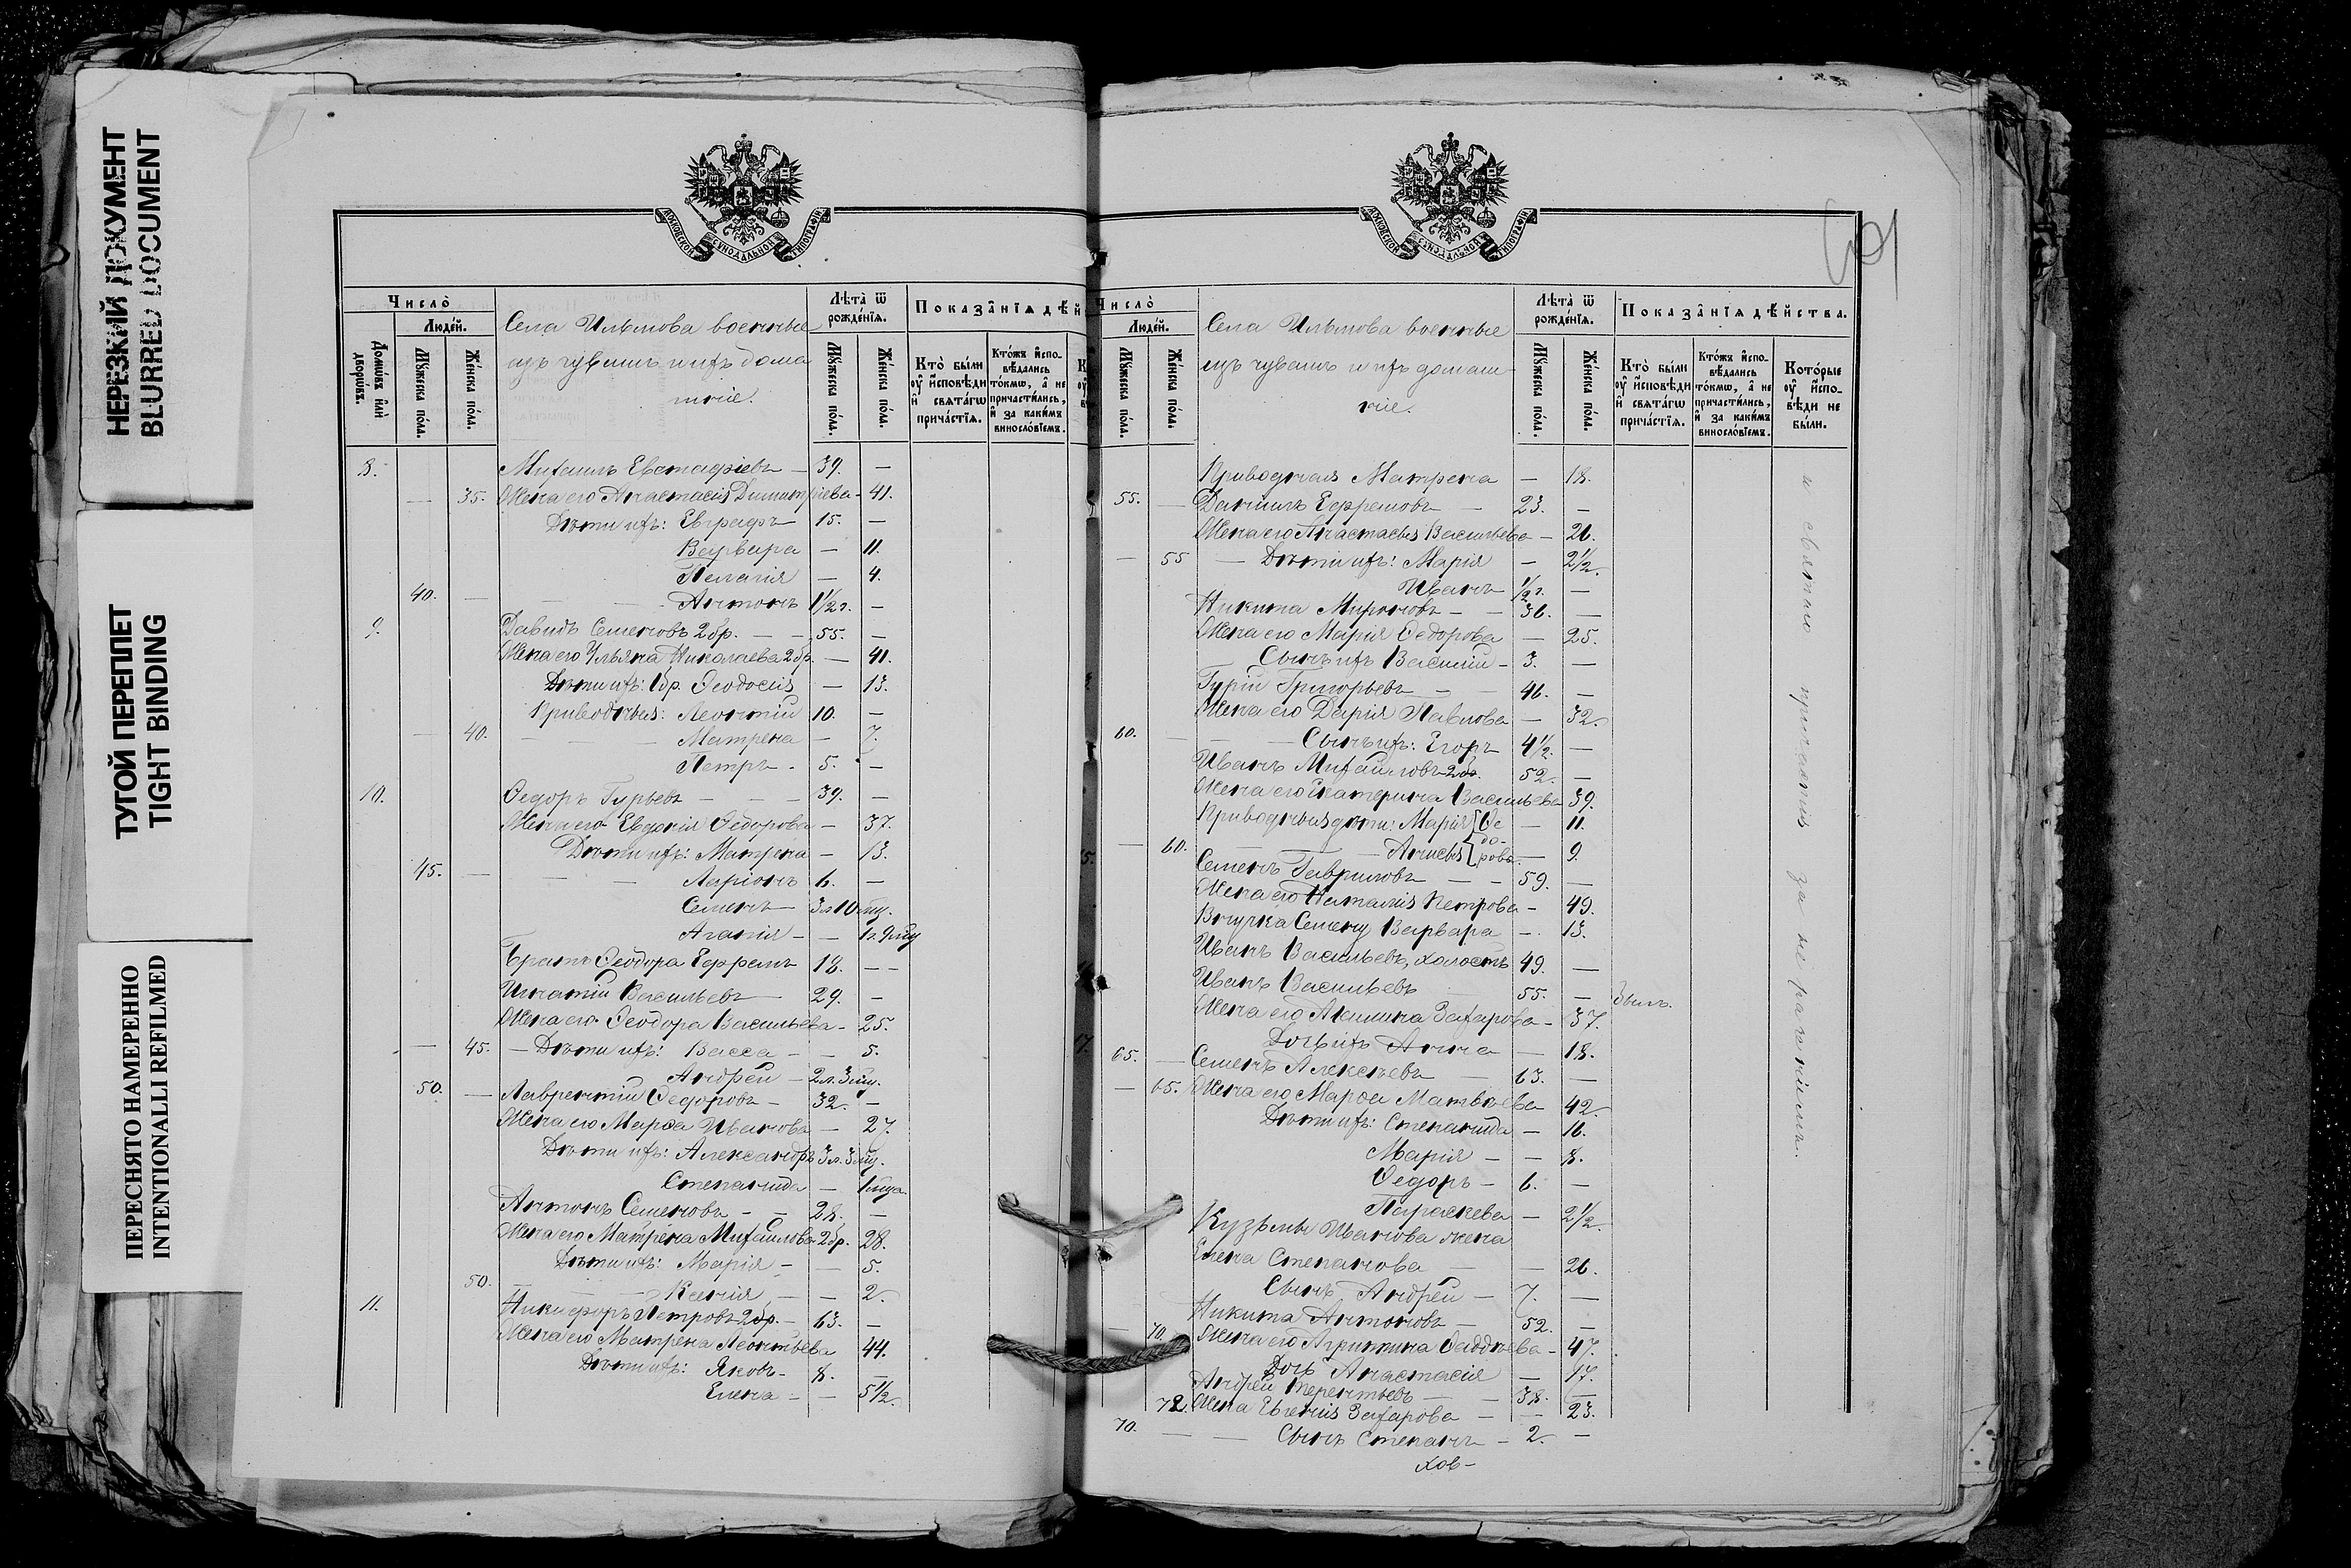 НЕРЕЗКИЙ ДОКУМЕНТ
BLURRED DOCUMENT
ТУГОЙ ПЕРЕПЛЕТ
TIGHT BINDING
ПЕРЕСНЯТО НАМЕРЕННО
INTENTIONALLI REFILMED
Число̀
Людéй.
Домѡ́въ и҆лѝ дворѡ́въ.
Мꙋ́жеска по́ла.
Же́нска по́ла.
Села Ильмова военные
изъ чувашъ и ихъ дома
шніе.
Лѣта̀ ѿ рожде́нїѧ.
Мꙋ́жеска по́ла.
Же́нска по́ла.
Показа̂нїѧ дѣ́й
Кто̀ бы́ли ᲂу҆ и҆сповѣди и҆ свѧта́гѡ прича́стїѧ.
Кто́жъ и҆спо- вѣдались то́кмѡ, а҆ не причасти́лись, и҆ за каки́мъ винослóвїемъ.
8. Михаилъ Евстафіевъ — 39. —
— 35. Жена его Анастасія Димитріева — 41.
Дѣти ихъ: Евграфъ 15. —
Варвара — 11.
Пелагія — 4.
40. — Антонъ 1½ г. —
9. Давидъ Семеновъ 2 бр. — 55. —
Жена его Ульяна Николаева 2 бр. — 41.
Дѣти ихъ: 1 бр. Ѳеодосія — 13.
Приводныя: Леонтій 10. —
— 40. Матрена — 7.
Петръ. 5. —
10. Ѳедоръ Гурьевъ — 39. —
Жена его Евдокія Ѳедорова — 37.
Дѣти ихъ: Матрена — 13.
45. — Ларіонъ 6. —
Семенъ — 3 л 10 мц.
Агапія — — 1 г. 9 мц
Братъ Ѳеодора Ефремъ 18. —
Игнатій Васильевъ 29. —
Жена его Ѳеодора Васильева — 25.
— 45. — Дѣти ихъ: Васса — — 5.
Андрей — 2 л. 3 мц.
50. — Лаврентій Ѳедоровъ — 32. —
Жена его Марѳа Иванова — 27.
Дѣти ихъ: Александръ 3 л. 3 мц.
Степанида — 1 мца.
Антонъ Семеновъ — 28. —
Жена его Матрена Михайлова 2 бр. 28.
Дѣти ихъ: Марія — — 5.
50. Ксенія — — 2.
11. Никифоръ Петровъ 2 бр. — 63. —
Жена его Матрена Леонтьева 44.
Дѣти ихъ: Яковъ — 8. —
Елена — — 5½.
Число̀
Людéй.
Мꙋ́жеска по́ла.
Же́нска по́ла.
Села Ильмова военные
изъ чувашъ и ихъ домаш-
ніе.
Лѣта̀ ѿ рожде́нїѧ.
Мꙋ́жеска по́ла.
Же́нска по́ла.
Показа̂нїѧ дѣ́йства.
Кто̀ бы́ли ᲂу҆ и҆сповѣди и҆ свѧта́гѡ прича́стїѧ.
Кто́жъ и҆спо- вѣдались то́кмѡ, а҆ не причасти́лись, и҆ за каки́мъ винослóвїемъ.
Кото́рые ᲂу҆ и҆спо- вѣди не бы́ли.
Приводная Матрена — 18.
55. — Даніилъ Ефремовъ — 23. —
Жена его Анастасія Васильева — 26.
— 55 — Дѣти ихъ: Марія — 2½.
Иванъ ½ г. —
Никита Мироновъ — — 36. —
Жена его Марія Ѳедорова — 25.
Сынъ ихъ Василій — 3. —
Гурій Григорьевъ — — 46. —
Жена его Дарія Павлова — 32.
60. — Сынъ ихъ: Егоръ 4½. —
Иванъ Михайловъ 2 бр. 52. —
Жена его Екатерина Васильева 39.
Приводныя дѣти: Марія Ѳе — 11.
— 60. — Анисья до- рова. — 9.
Семенъ Гавриловъ — — 59. —
Жена его Наталія Петрова — 49.
Внучка Семену Варвара — 13.
Иванъ Васильевъ, холостъ 49. —
Иванъ Васильевъ 55. — 3 былъ.
Жена его Акилина Захарова — 37.
Дочь ихъ Анна — 18.
65. — Семенъ Алексѣевъ 63. —
— 65. Жена его Марѳа Матвѣева 42.
Дѣти ихъ: Степанида — 16.
Марія — — 8.
Ѳедоръ — 6. —
Параскева — 2½.
Кузьмы Иванова жена
Елена Степанова — 26.
Сынъ Андрей — 7. —
Никита Антоновъ — 52. —
— 70. Жена его Агрипина Ѳаддѣева — 47.
Дочь Анастасія — 17.
Андрей Терентьевъ — 38. —
72. Жена Евгенія Захарова — — 23.
70. — Сынъ Степанъ — 2. —
хов-
и святаго причастія за не раченіемъ.